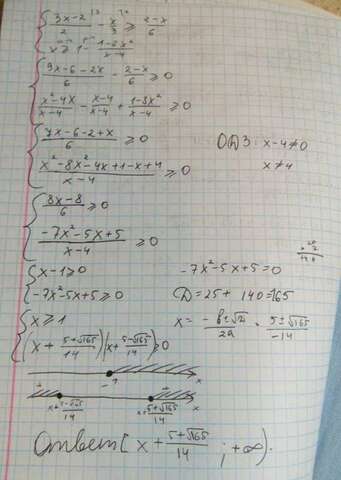 (3x-2)/2 - x/3 ≥ (2-x)/6
x ≥ 1 - (1-8x²)/(x-4)
(9x-6-2x)/6 - (2-x)/6 ≥ 0
(x²-4x)/(x-4) - (x-4)/(x-4) + (1-8x²)/(x-4) ≥ 0
(7x-6-2+x)/6 ≥ 0
ОДЗ: x-4≠0
(x²-8x²-4x+1-x+4)/(x-4) ≥ 0
x≠4
(8x-8)/6 ≥ 0
(-7x²-5x+5)/(x-4) ≥ 0
x-1≥0
-7x²-5x+5=0
-7x²-5x+5≥0
D=25+140=165
x≥1
x= (-b±√D)/2a = (5±√165)/-14
(x + (5+√165)/14)(x+ (5-√165)/14)≥0
x
x
Ответ[x + (5+√165)/14 ; +∞).